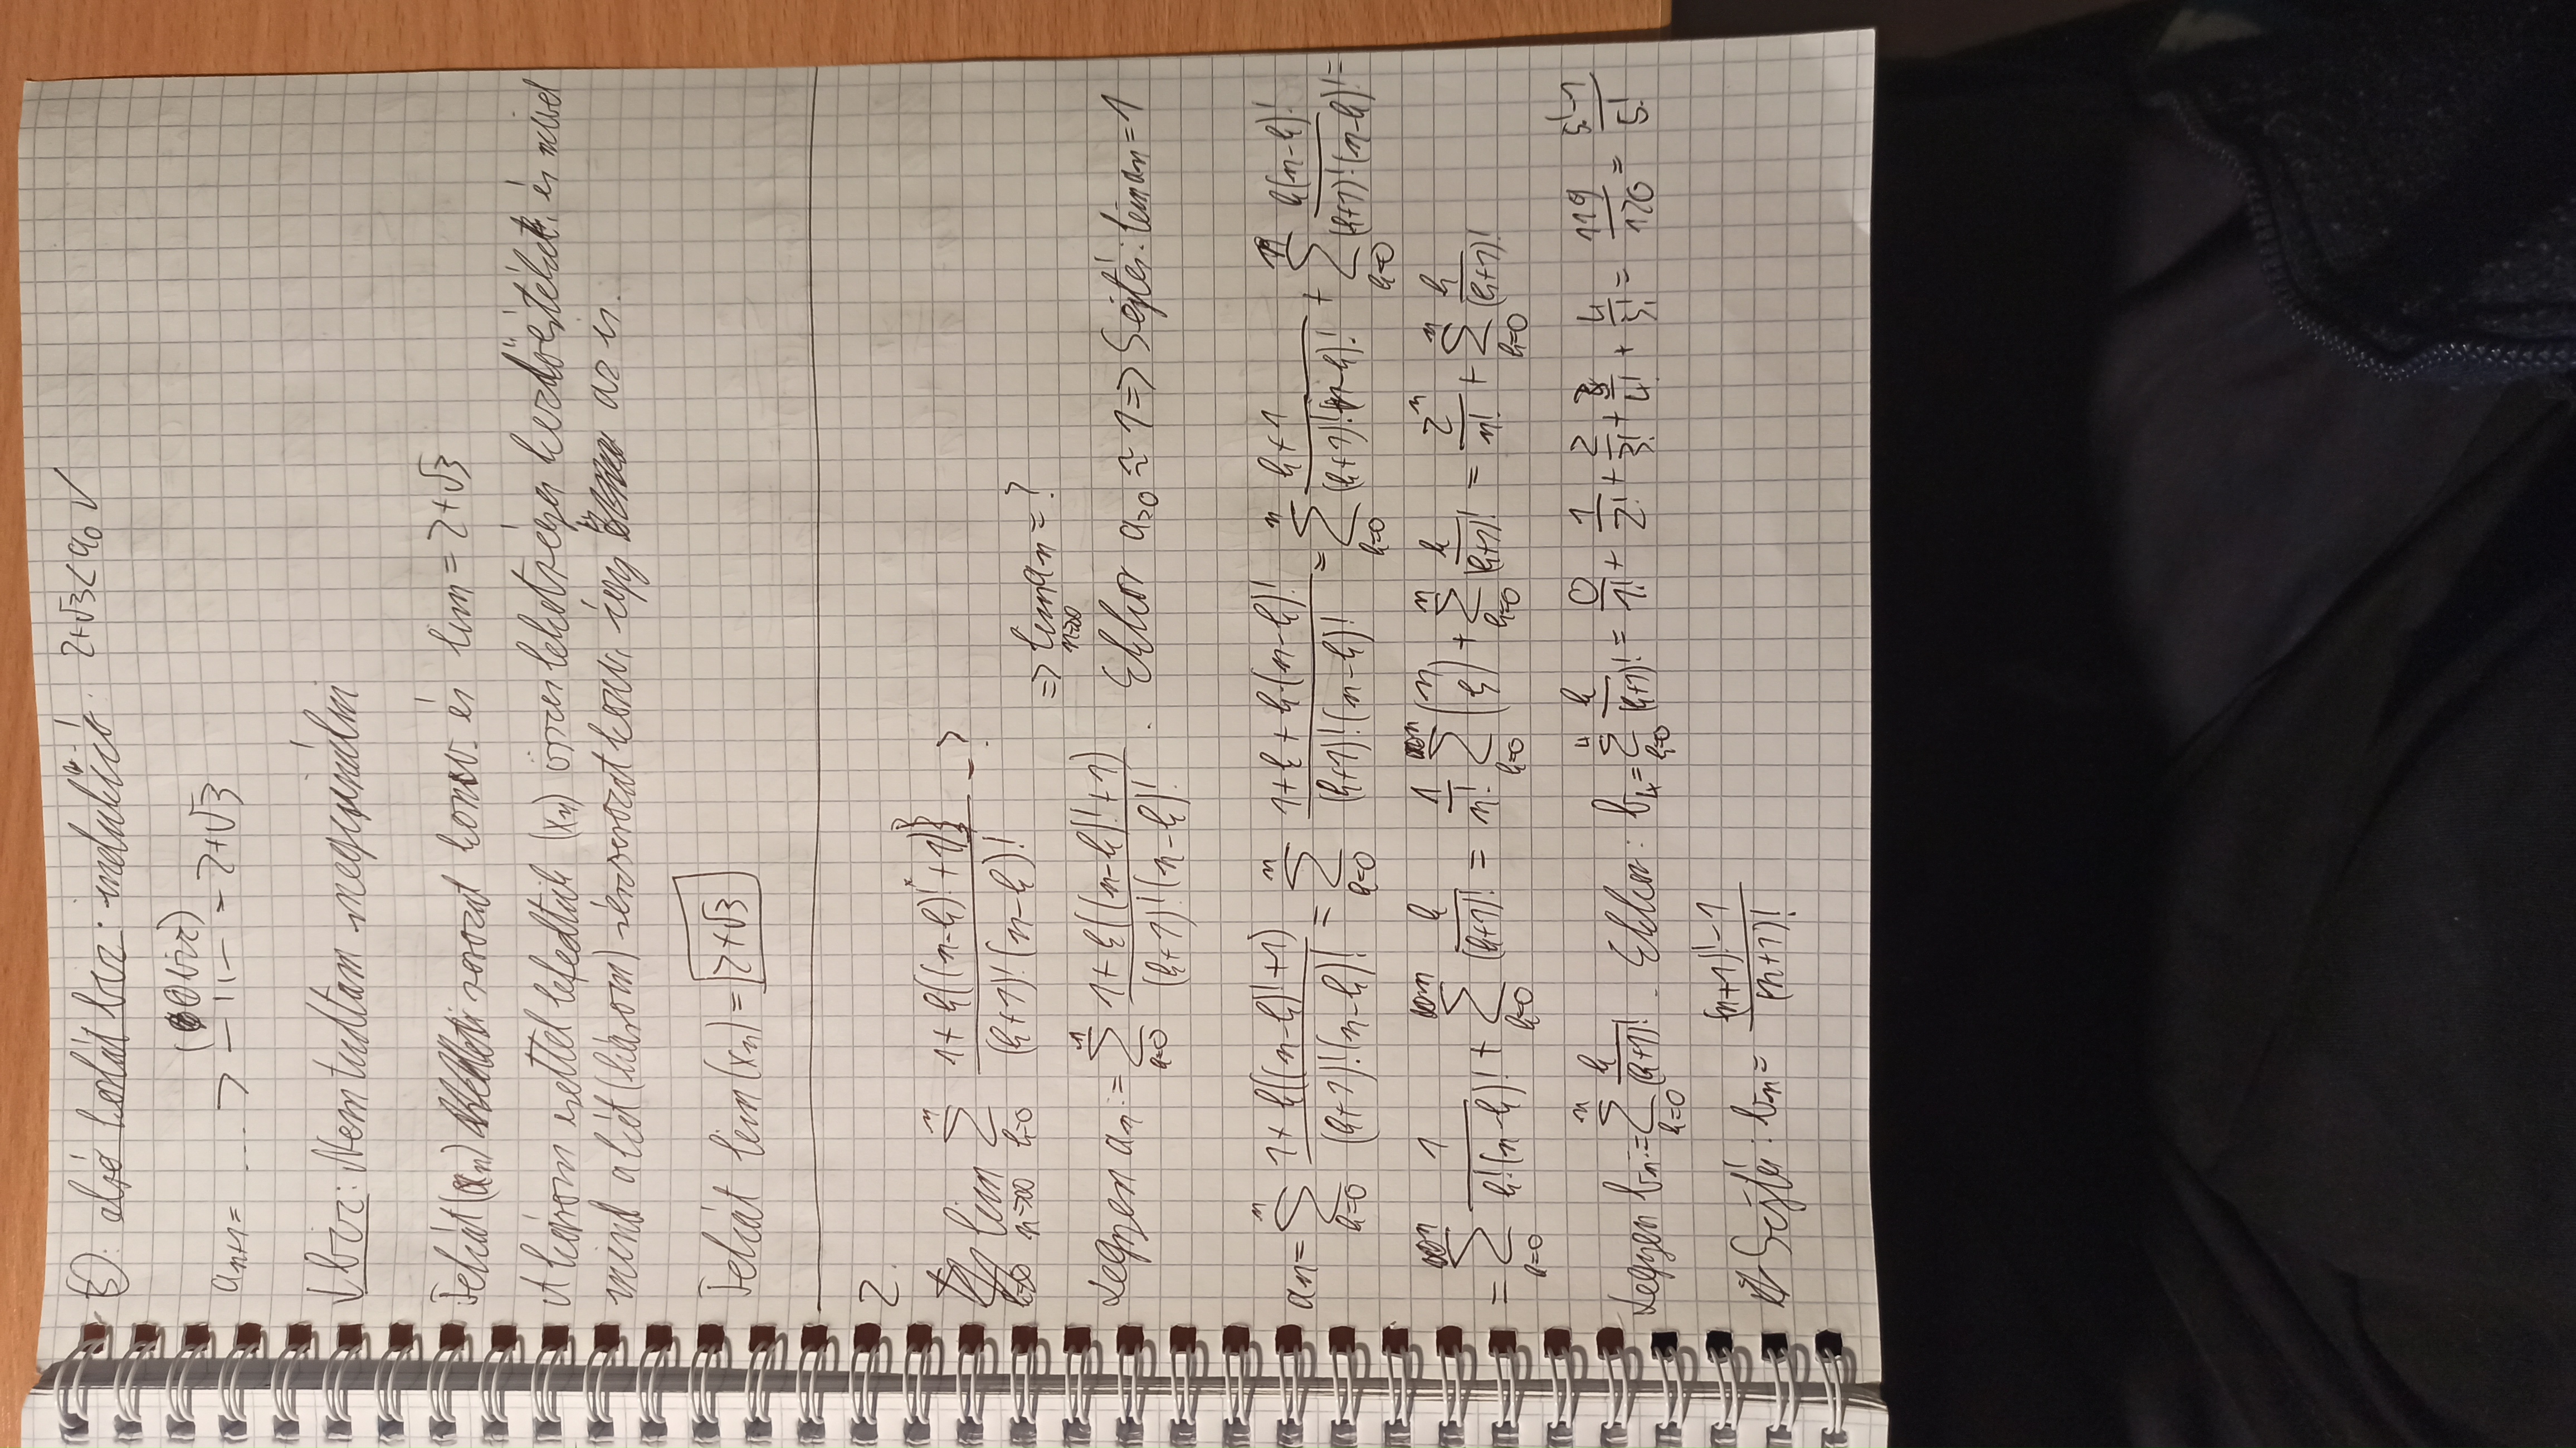 ③: alsó korlát biz.: indukció. 2+√3 < a₀ ✓
(① biz)
aₙ₊₁ = ... > —〃— = 2+√3
↓ biz: Nem tudtam megcsinálni
Tehát (aₙ) sorozat konv. és lim = 2+√3
A három esettel lefedtük (xₙ) összes lehetséges kezdőértékét, és mivel
mind a két (három) részsorozat konv. így az is.
Tehát lim(xₙ) = 2+√3
2.
lim_{n→∞} ∑_{k=0}^{n} (1+k((n-k)!+1))/((k+1)!(n-k)!) = ?
⇒ lim_{n→∞} aₙ = ?
Legyen aₙ := ∑_{k=0}^{n} (1+k((n-k)!+1))/((k+1)!(n-k)!). Ekkor a₂₀ ≈ 1 ⇒ Sejtés: lim aₙ = 1
aₙ = ∑_{k=0}^{n} (1+k((n-k)!+1))/((k+1)!(n-k)!) = ∑_{k=0}^{n} (1+k+k(n-k)!)/((k+1)!(n-k)!) = ∑_{k=0}^{n} (k+1)/((k+1)!(n-k)!) + ∑_{k=0}^{n} (k(n-k)!)/((k+1)!(n-k)!) =
= ∑_{k=0}^{n} 1/(k!(n-k)!) + ∑_{k=0}^{n} k/(k+1)! = 1/n! ∑_{k=0}^{n} (n k) + ∑_{k=0}^{n} k/(k+1)! = 2ⁿ/n! + ∑_{k=0}^{n} k/(k+1)!
Legyen bₙ := ∑_{k=0}^{n} k/(k+1)!. Ekkor: b₄ = ∑_{k=0}^{4} k/(k+1)! = 0/1! + 1/2! + 2/3! + 3/4! + 4/5! = 119/120 = (5!-1)/5!
Sejtés: bₙ = ((n+1)!-1)/(n+1)!